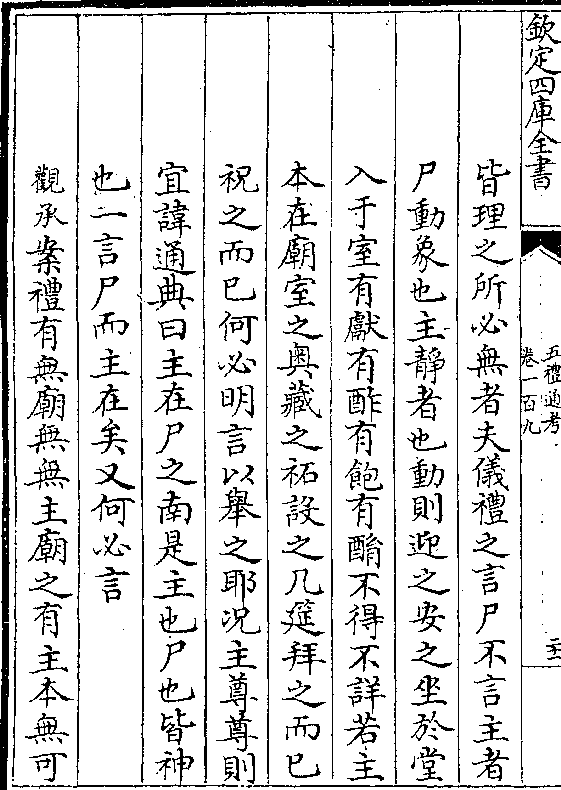 欽定四庫全書
五禮通考
卷一百九
皆理之所必無者夫儀禮之言尸不言主者
尸動象也主靜者也動則迎之安之坐於堂
入于室有獻有酢有飽有酳不得不詳若主
本在廟室之奧藏之祏設之几筵拜之而已
祝之而已何必明言以舉之耶况主尊尊則
宜諱通典曰主在尸之南是主也尸也皆神
也一言尸而主在矣又何必言
觀承案禮有無廟無無主廟之有主本無可